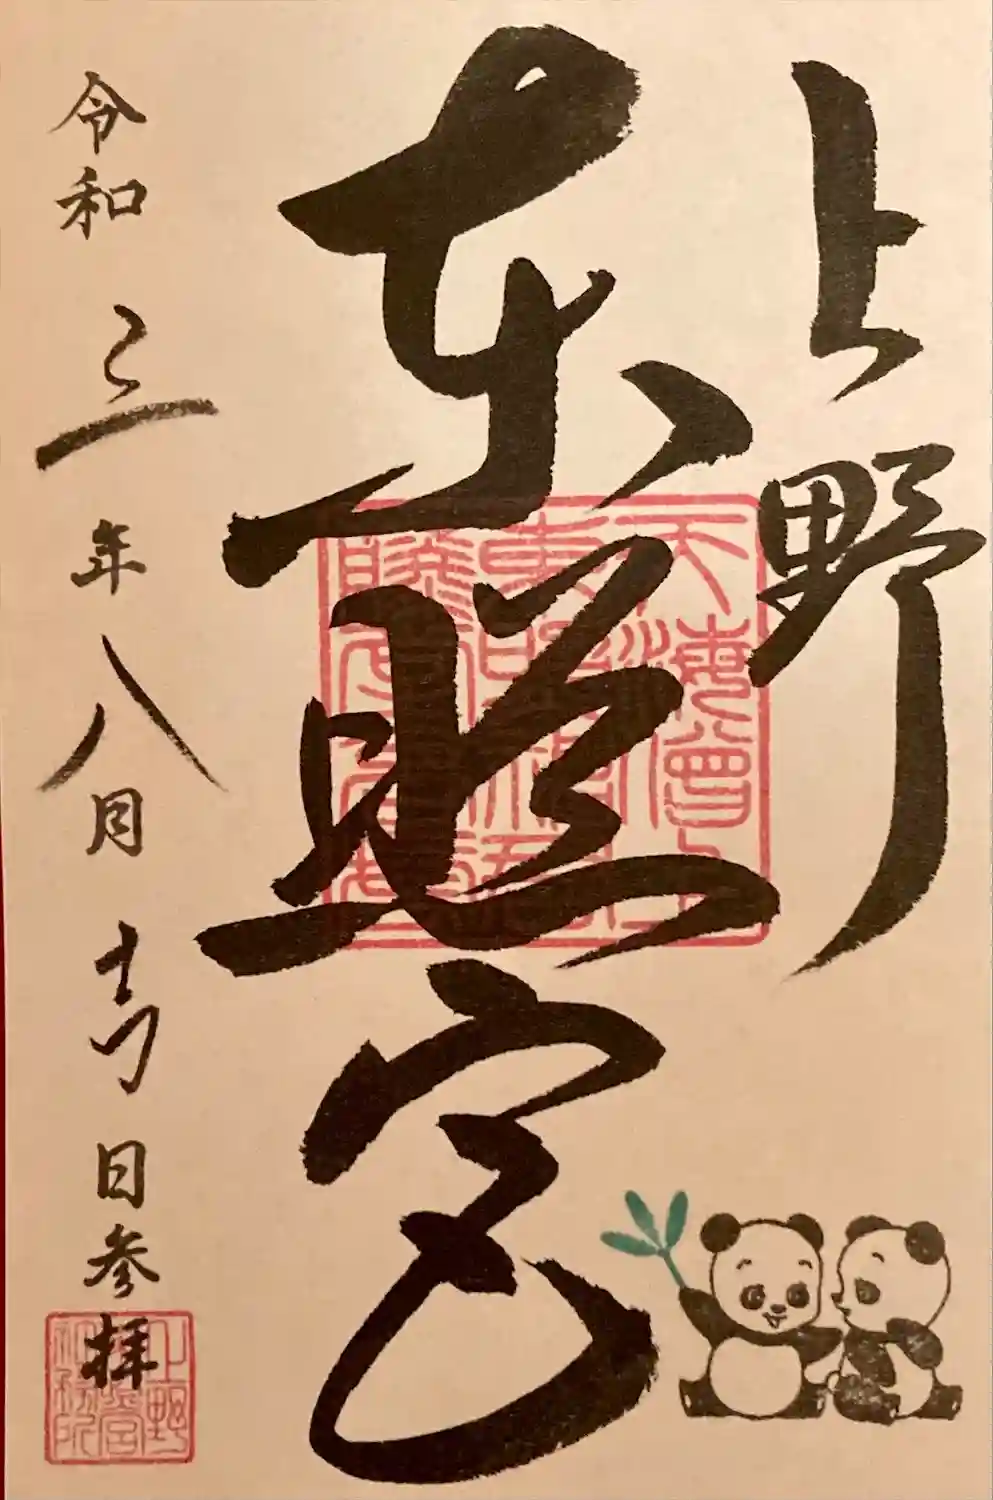 上野
東照宮
令和三年八月十七日参拝